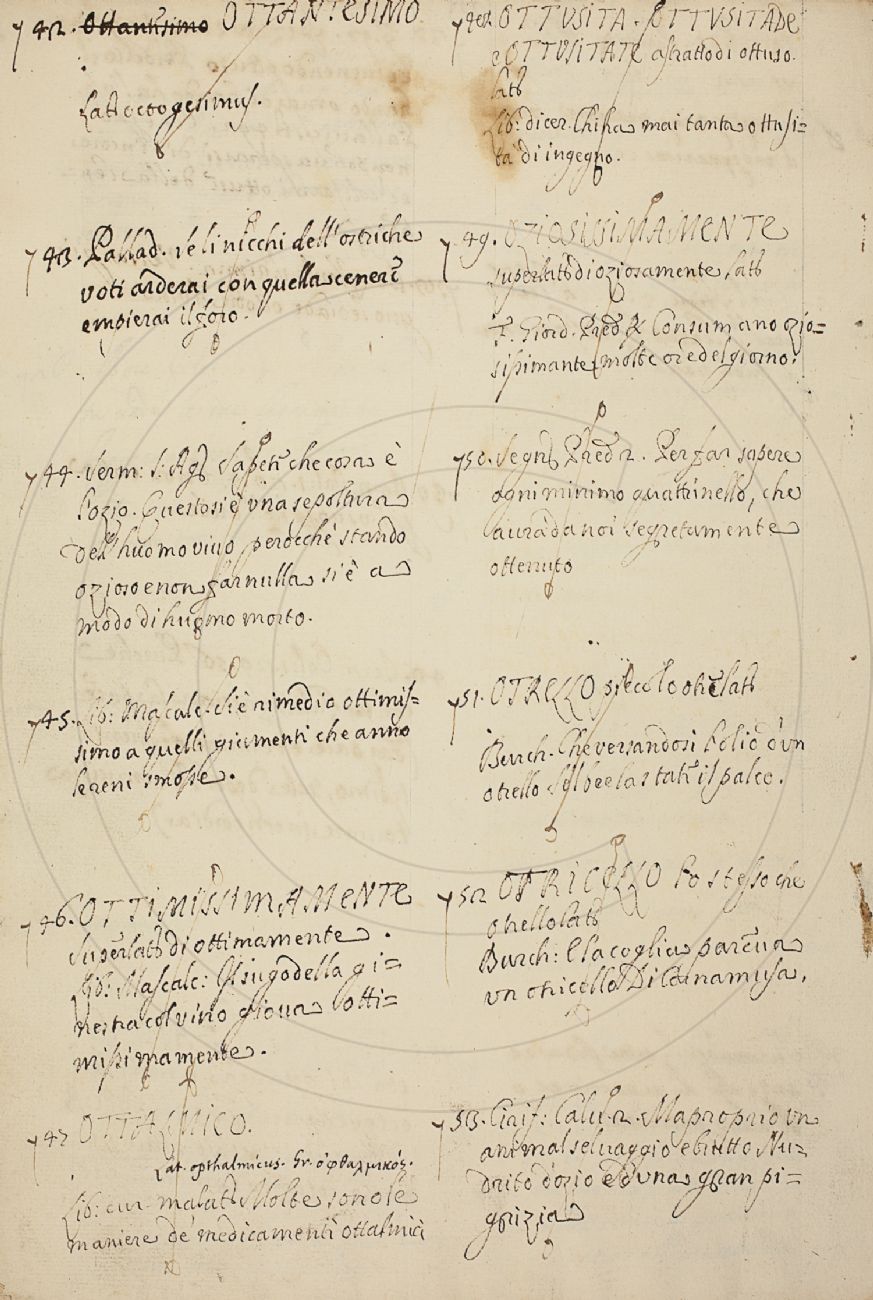 742. Ottantesimo OTTANTESIMO
Lat. octogesimus.
743. Pallad. se li nicchi dell'ostriche
voti arderai con quella cenere
empierai il foro.
744. Serm: S: Ag. Sapete che cosa è
l'ozio. Questo si è una sepoltura
dell'huomo vivo, perocché stando
ozioso e non far nulla si è a
modo di huomo morto.
745. Lib: Mascalc. si è rimedio ottimis=
simo a quelli giumenti che anno
le reni smosse.
746. OTTIMISSIMAMENTE
Superlat. di ottimamente.
Lib: Mascalc: Il sugo della gi=
nestra col vino giova otti=
missimamente.
747 OTTALMICO.
Lat. opthalmicus. Gr. ὀφθαλμικός.
Lib: cur. malat. Molte sono le
maniere de' medicamenti ottalmici
748. OTTUSITA. OTTUSITADE
e OTTUSITATE astratto di ottuso.
Lat.
Lib: dicer. Chi ha mai tanta ottusi=
tà di ingegno.
749. OZIOSISSIMAMENTE
superlat. di oziosamente, Lat.
F. Giord. Pred. R. Consumano ozio=
sissimamente molte ore del giorno.
750. Segn. Pred. Per far sapere
ogni minimo quattrinello, che
aurà da noi segretamente
ottenuto
751. OTRELLO piccolo otre Lat.
Burch. Che versandosi l'olio d'un
otrello
752 OTRICELLO lo stesso che
otrello Lat.
Burch: E la coglia pareva
un otricello di Cornamusa.
753. Ciriff: Calv. Ma proprio un
animal selvaggio e bitutto Nu=
drito d'ozio e d'una gran pi=
grizia